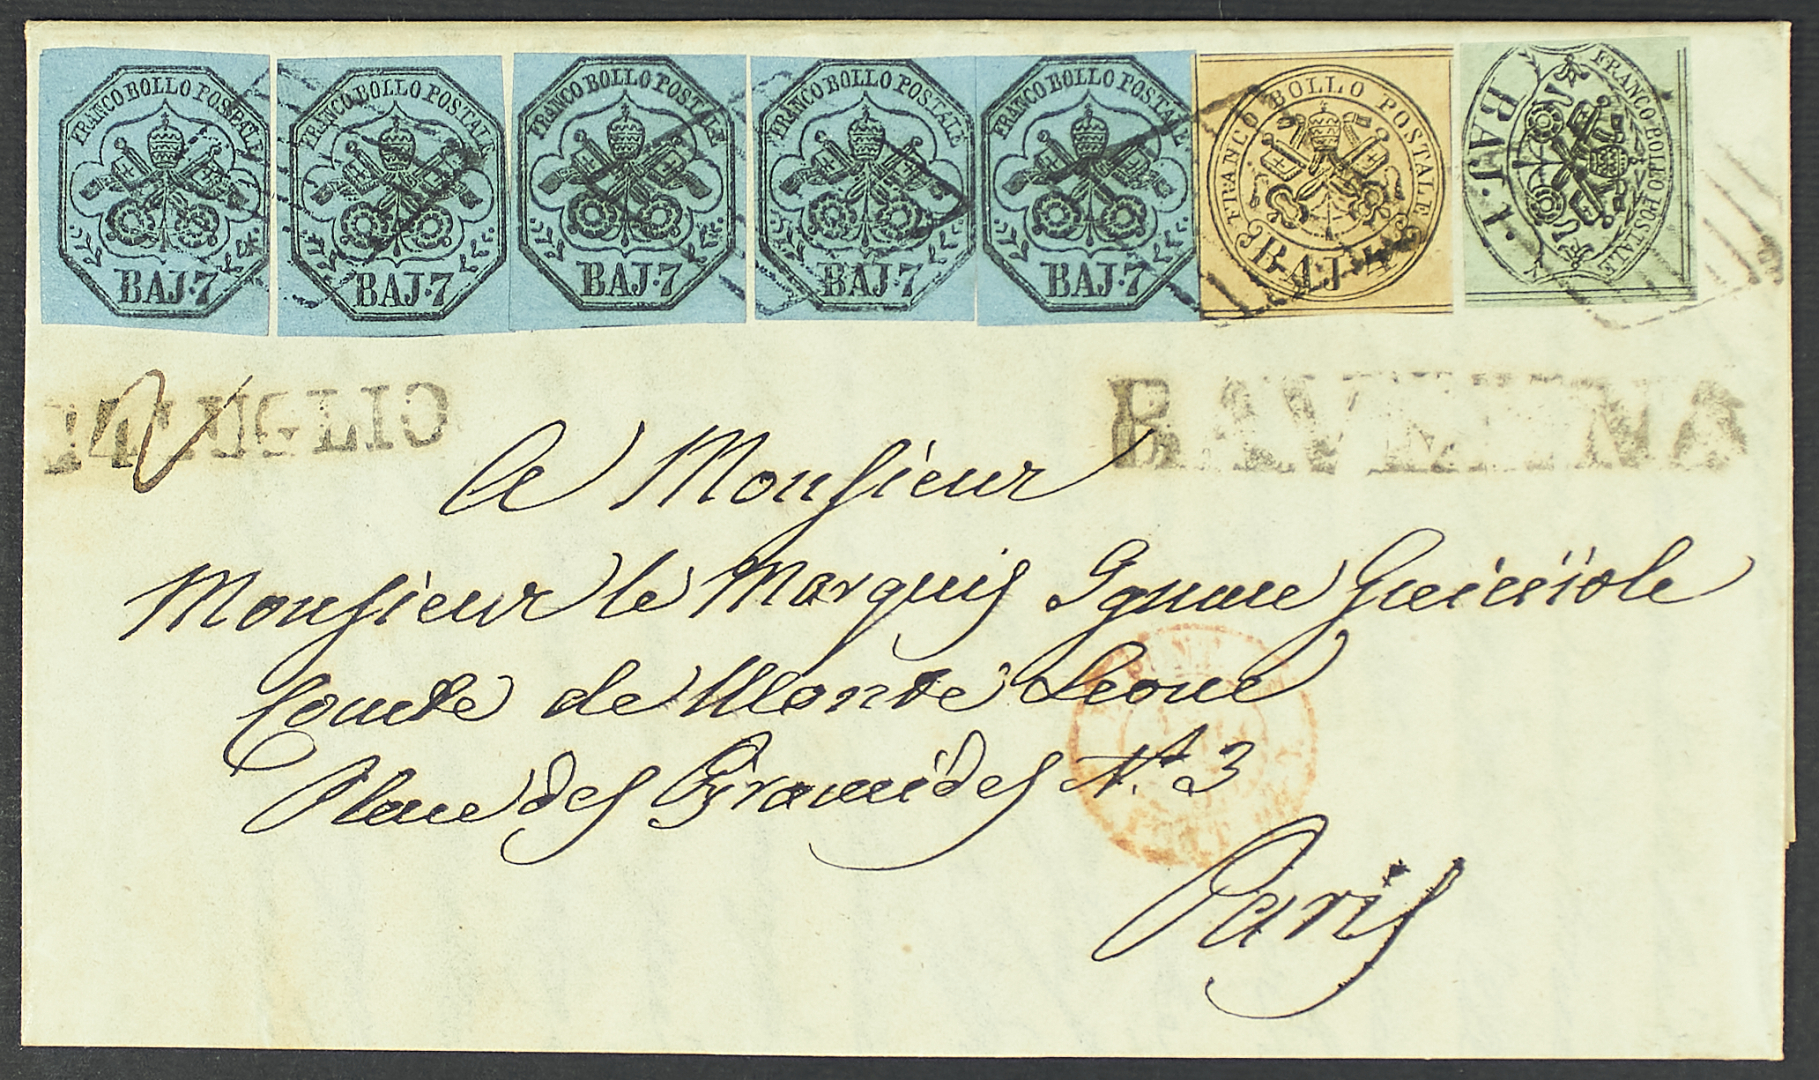 FRANCO BOLLO POSTALE
BAJ. 7
FRANCO BOLLO POSTALE
BAJ. 7
FRANCO BOLLO POSTALE
BAJ. 7
FRANCO BOLLO POSTALE
BAJ. 7
FRANCO BOLLO POSTALE
BAJ. 7
FRANCO BOLLO POSTALE
BAJ. 4
FRANCO BOLLO POSTALE
BAJ. 1.
14 LUGLIO
RAVENNA
A Monsieur
Monsieur le Marquis Ignace Guiccioli
Comte de Monte Leone
Place des Piramides Nº. 3
Paris